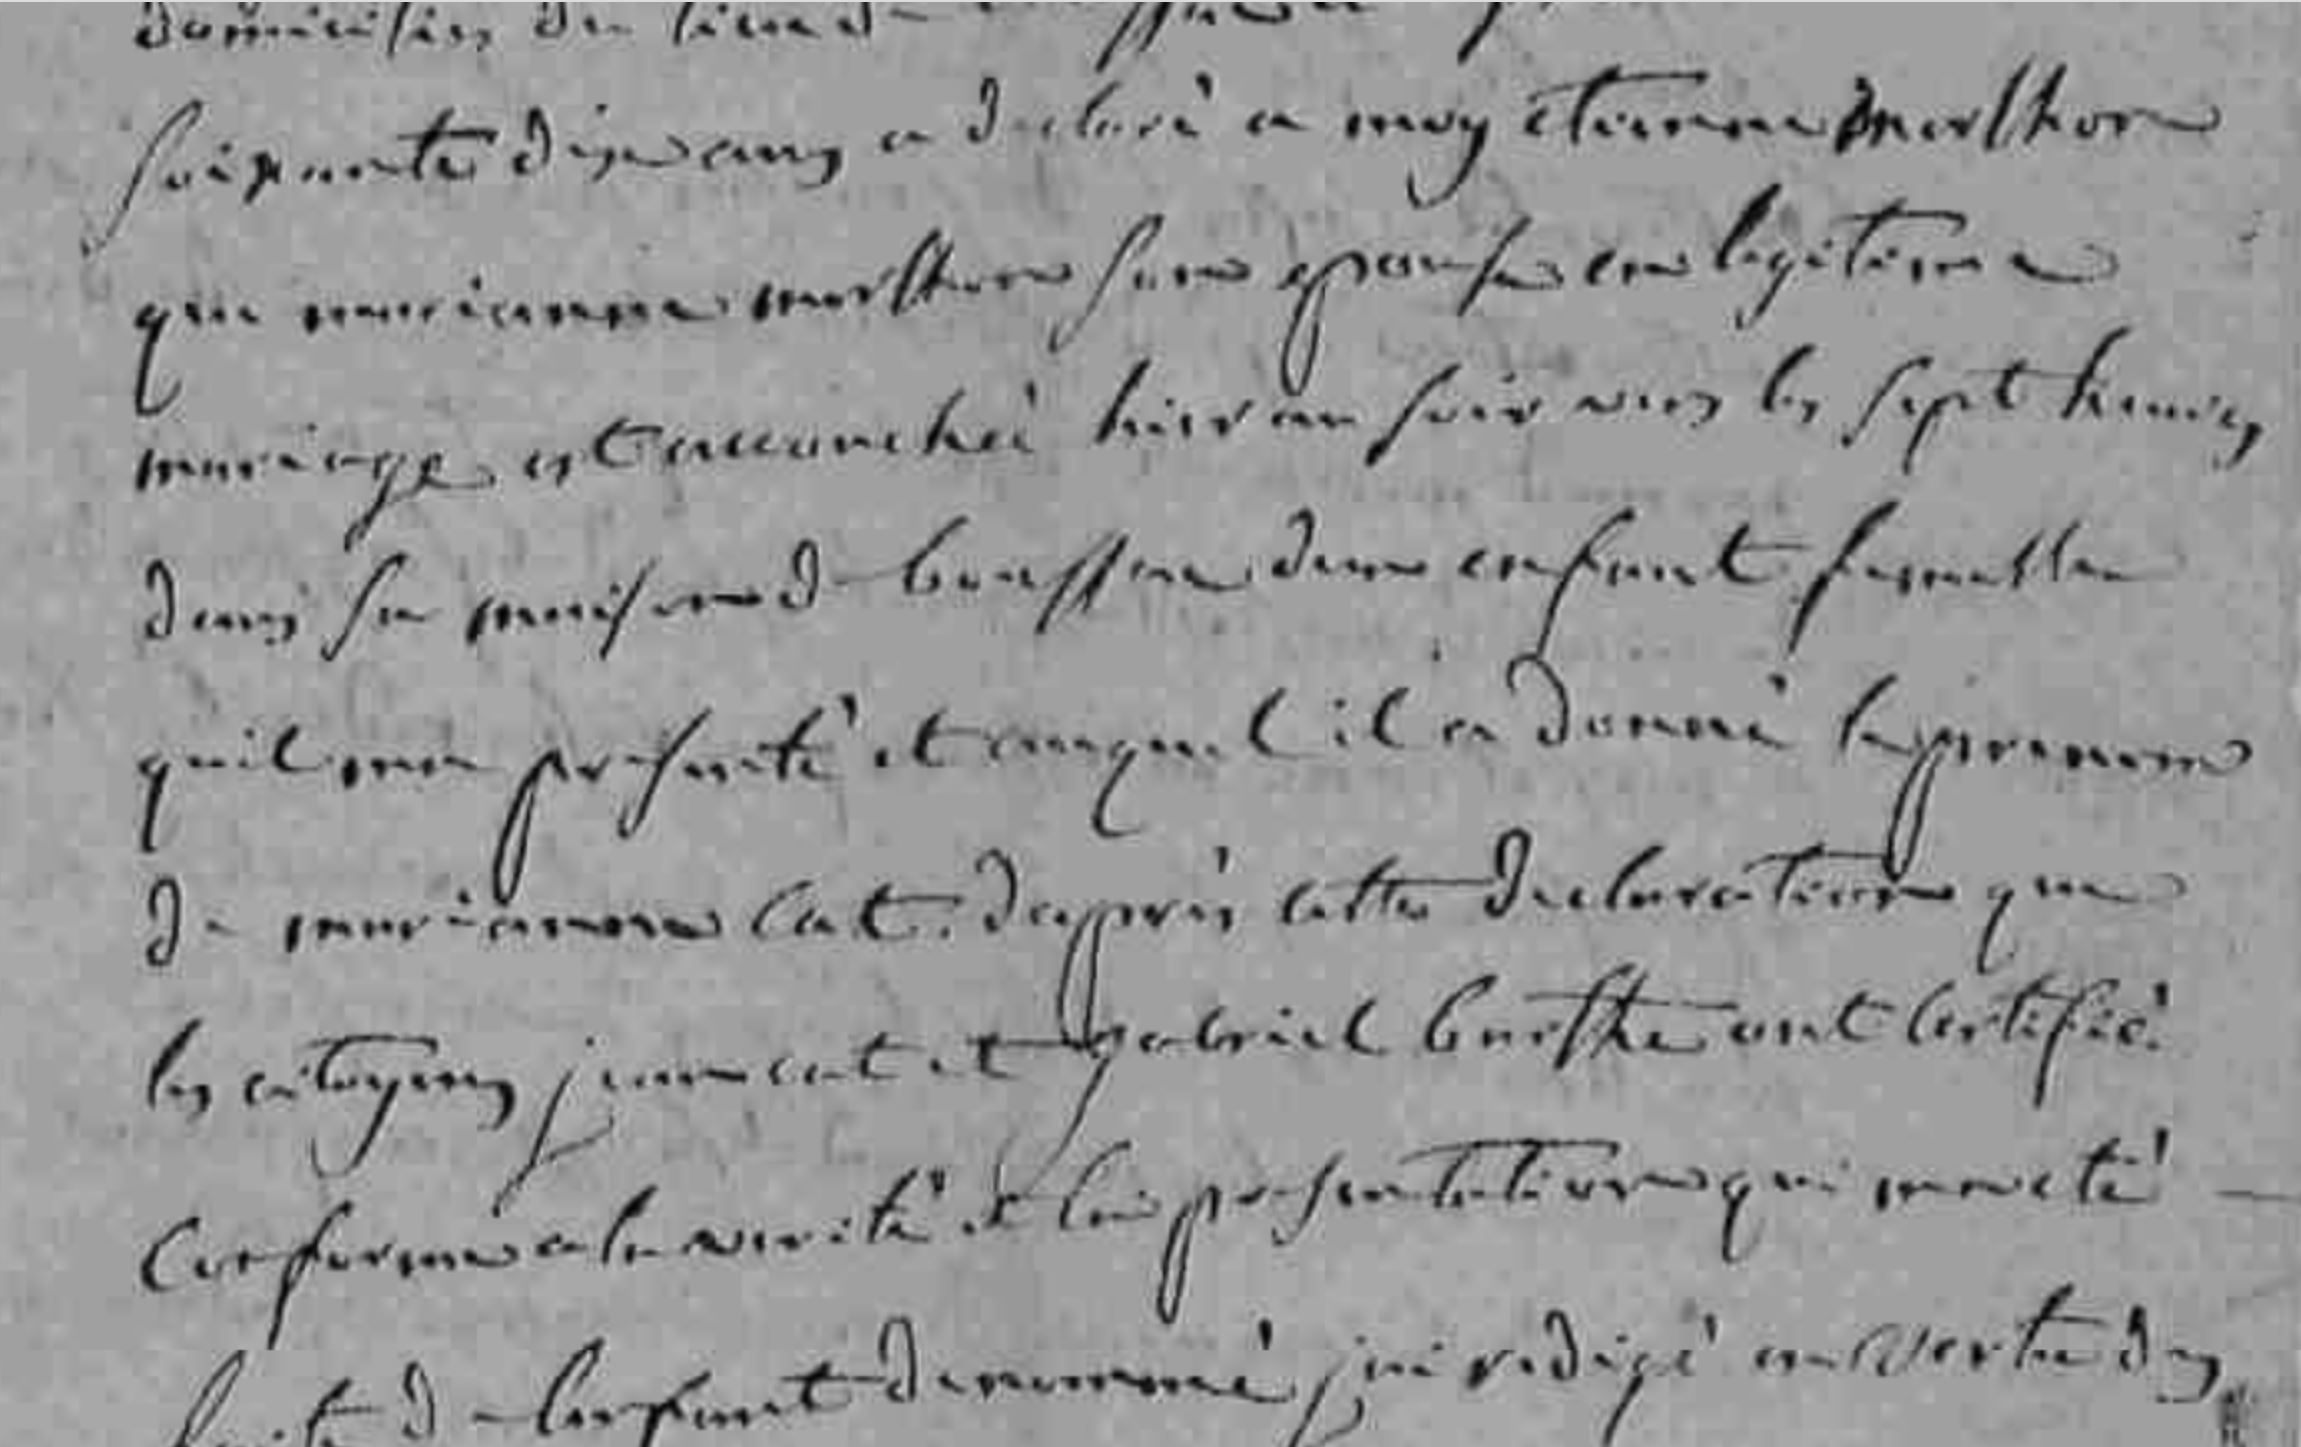 domiciliés du lieu d
soixante dix ans a declaré a moy etienne morlhon
que marianne morlhon son epouse en legitime
mariage est accouchée hier au soir vers les sept heures
dans sa maison d boussac dun enfant femelle
quil ma presenté et auquel il a donné le prenom
de marianne cat. dapprès cette declaration que
les citoyens jean cat et gabriel ont certifié
conforme a la verité et la presentation qui ma eté
faite de lenfant denommé jai redigé en vertu des